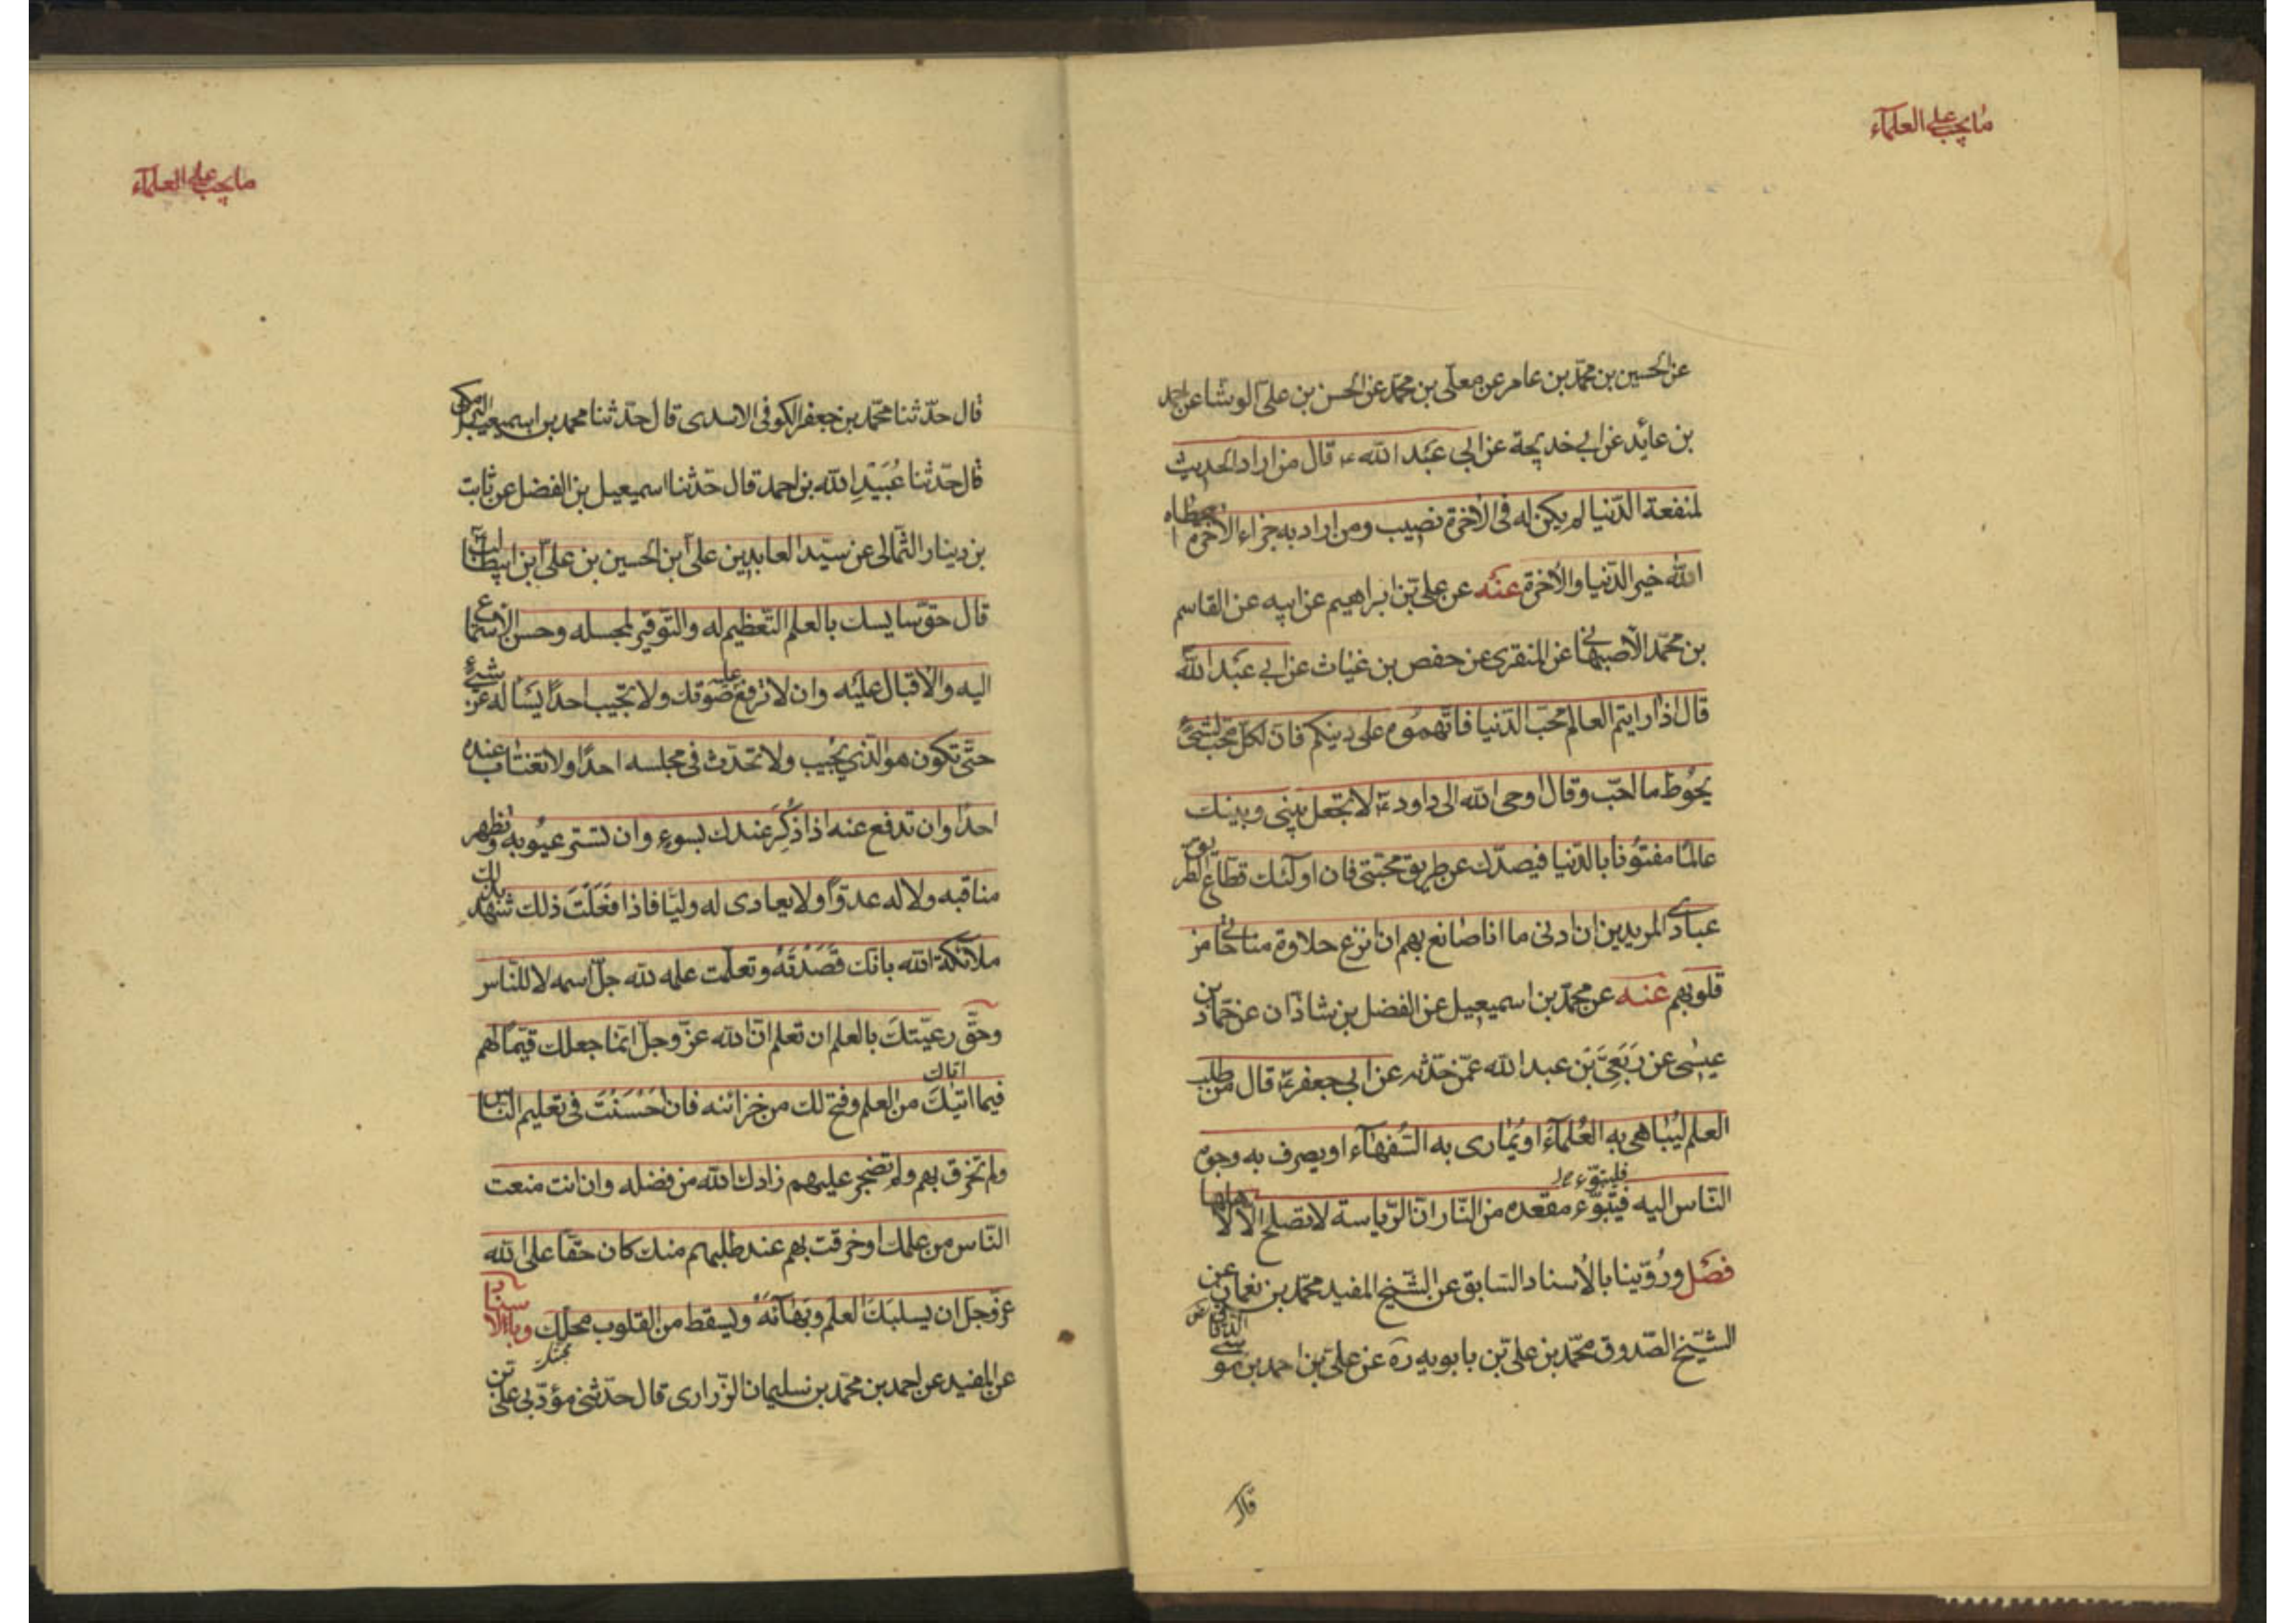 ما يجب على العلمآء
عن الحسين بن محمّد بن عامر عن معلّى بن محمّد عن الحسن بن علىّ الوشا عن احمد
بن عائد عن ابى خديجة عن ابى عبد الله ع قال من اراد الحديث
لمنفعة الدّنيا لم يكن له فى الأخرة نصيب ومن اراد به جزاء الأخرة اعطاه
الله خير الدّنيا والأخرة عنه عن على بن ابراهيم عن ابيه عن القاسم
بن محمّد الأصبهانى عن المنقرى عن حفص بن غياث عن ابى عبد الله
قال اذا رايتم العالم محبّ الدّنيا فاتّهموه على دينكم فانّ لكلّ محبّ لشئ
يحوط ما احبّ وقال اوحى الله الى داود ع لا تجعل بينى وبينك
عالمًا مفتونا بالدّنيا فيصدّك عن طريق محبّتى فان اولئك قطّاع طريق
عبادى المريدين ان ادنى ما انا صانع بهم ان انزع حلاوة مناجاتى من
قلوبهم عنه عن محمّد بن اسميعيل عن الفضل بن شاذان عن حمّاد بن
عيسى عن ربعىّ بن عبد الله عمّن حدّثه عن ابى جعفر ع قال من طلب
العلم ليباهى به العلمآء او يمارى به السّفهآء او يصرف به وجوه
فليتبوّء
النّاس اليه فيتبوّء مقعده من النّار انّ الرّياسة لا تصلح الّا لاهلها
فصل وروّينا بالأسناد السّابق عن الشّيخ المفيد محمّد بن نعمان عن
الشّيخ الصّدوق محمّد بن علىّ بن بابويه ره عن علىّ بن احمد بن موسى الدقاق رض
قال
ما يجب على العلمآء
قال حدّثنا محمّد بن جعفر الكوفى الاسدى قال حدّثنا محمد بن اسميعيل البرمكى
قال حدّثنا عُبَيْدِ الله بن احمد قال حدّثنا اسميعيل بن الفضل عن ثابت
بن دينار الثّمالى عن سيّد العابدين علىّ ابن الحسين بن علىّ ابن ابيطالب
قال حقّ سايسك بالعلم التّعظيم له والتّوقير لمجسله وحسن الأستماع
اليه والأقبال عليه وان لا ترفع عليه صوتك ولا تجيب احدًا يسأله عن شئ
حتّى تكون هو الّذي يجيب ولا تحدّث فى مجلسه احدًا ولا تغتاب عنده
احدًا وان تدفع عنه اذا ذُكِرَ عندك بسوء وان تستر عيوبه وتظهر
مناقبه ولا له عدوّاً ولا يعادى له وليّا فاذا فَعَلْتَ ذلك شهد لك
ملائكة الله بانك قَصَدْتَهُ وتعلّمت علمه لله جلّ اسمه لا للنّاس
وحقّ رعيّتك بالعلم ان تعلم انّ الله عزّ وجلّ انّما جعلك قيّمًا لهم
اتاك
فيما اتيك من العلم وفتح لك من خزائنه فان احسَنْتَ فى تعليم النّاس
ولم تخرق بهم ولم تضجر عليهم زادك الله من فضله وان انت منعت
النّاس من علمك او خرقت بهم عند طلبهم منك كان حقّا على الله
عزّ وجلّ ان يسلبك العلم وبهآئه ويسقط من القلوب محلّك وبالأسناد
عن المفيد عن احمد بن محمّد بن سليمان الزّرارى قال حدّثنى مؤدّبى علىّ بن